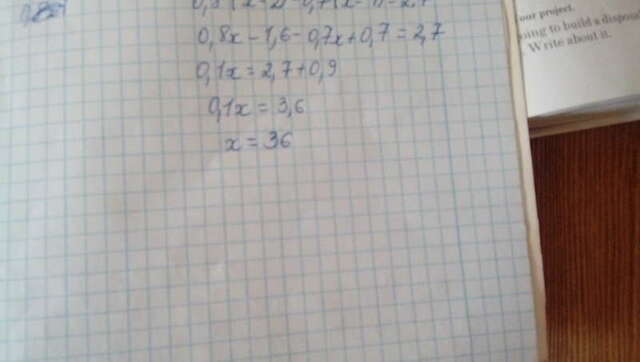 0,8x-1,6-0,7x+0,7=2,7
0,1x=2,7+0,9
0,1x=3,6
x=36
our project.
ing to build a dispos
Write about it.